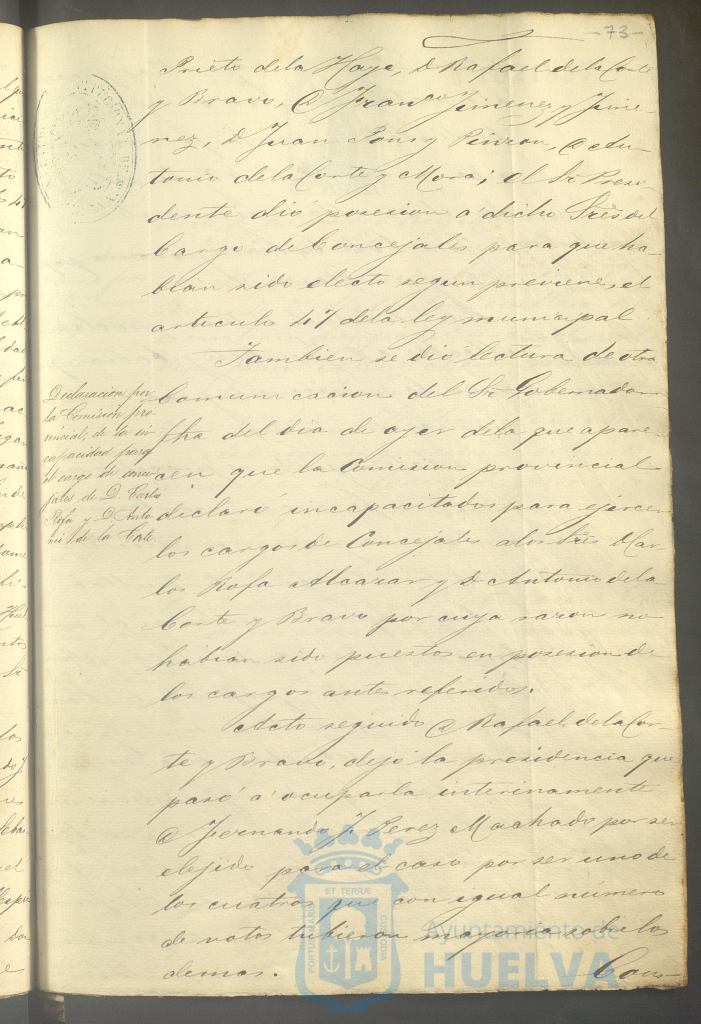 -73-
Prieto dela Haya, D. Rafael dela Corte
y Bravo, D. Franco Jimenez y Jime-
nez, D Juan Pons y Pinzon, D. An-
tonio dela Corte y Mora; el Sr Presi-
dente dió posesion á dicho Sres del
Cargo de Concejales para que ha-
bian sido electo segun previene, el
articulo 47 dela ley municipal
Tambien se dio lectura de otra
Comunicacion del Sr Gobernador
fha del dia de ayer dela que apare-
cen que la Comision provincial
declaró incapacitados para ejercer
los cargos de Concejales alos Sres D Car-
los Rofa Alcazar y D Antonio dela
Corte y Bravo por cuya razon no
habian sido puestos en posesion de
los cargos antes referidos.
Acto seguido D Rafael dela Cor-
te y Bravo, dejó la presidencia que
pasó á ocuparla interinamente
D Fernando J. Perez Machado por ser
elejido para el caso por ser uno de
los cuatros que con igual número
de votos tubieron mayoria sobre los
demas.
Con-
Declaracion por
la Comisión pro-
vincial, de la in-
capacidad para
el cargo de conce-
jales de D. Carlos
Rofa y D. Anto-
nio de la Corte.
ET TERRÆ
PORTUS MARIS
CUSTODIA
Ayuntamiento de
HUELVA